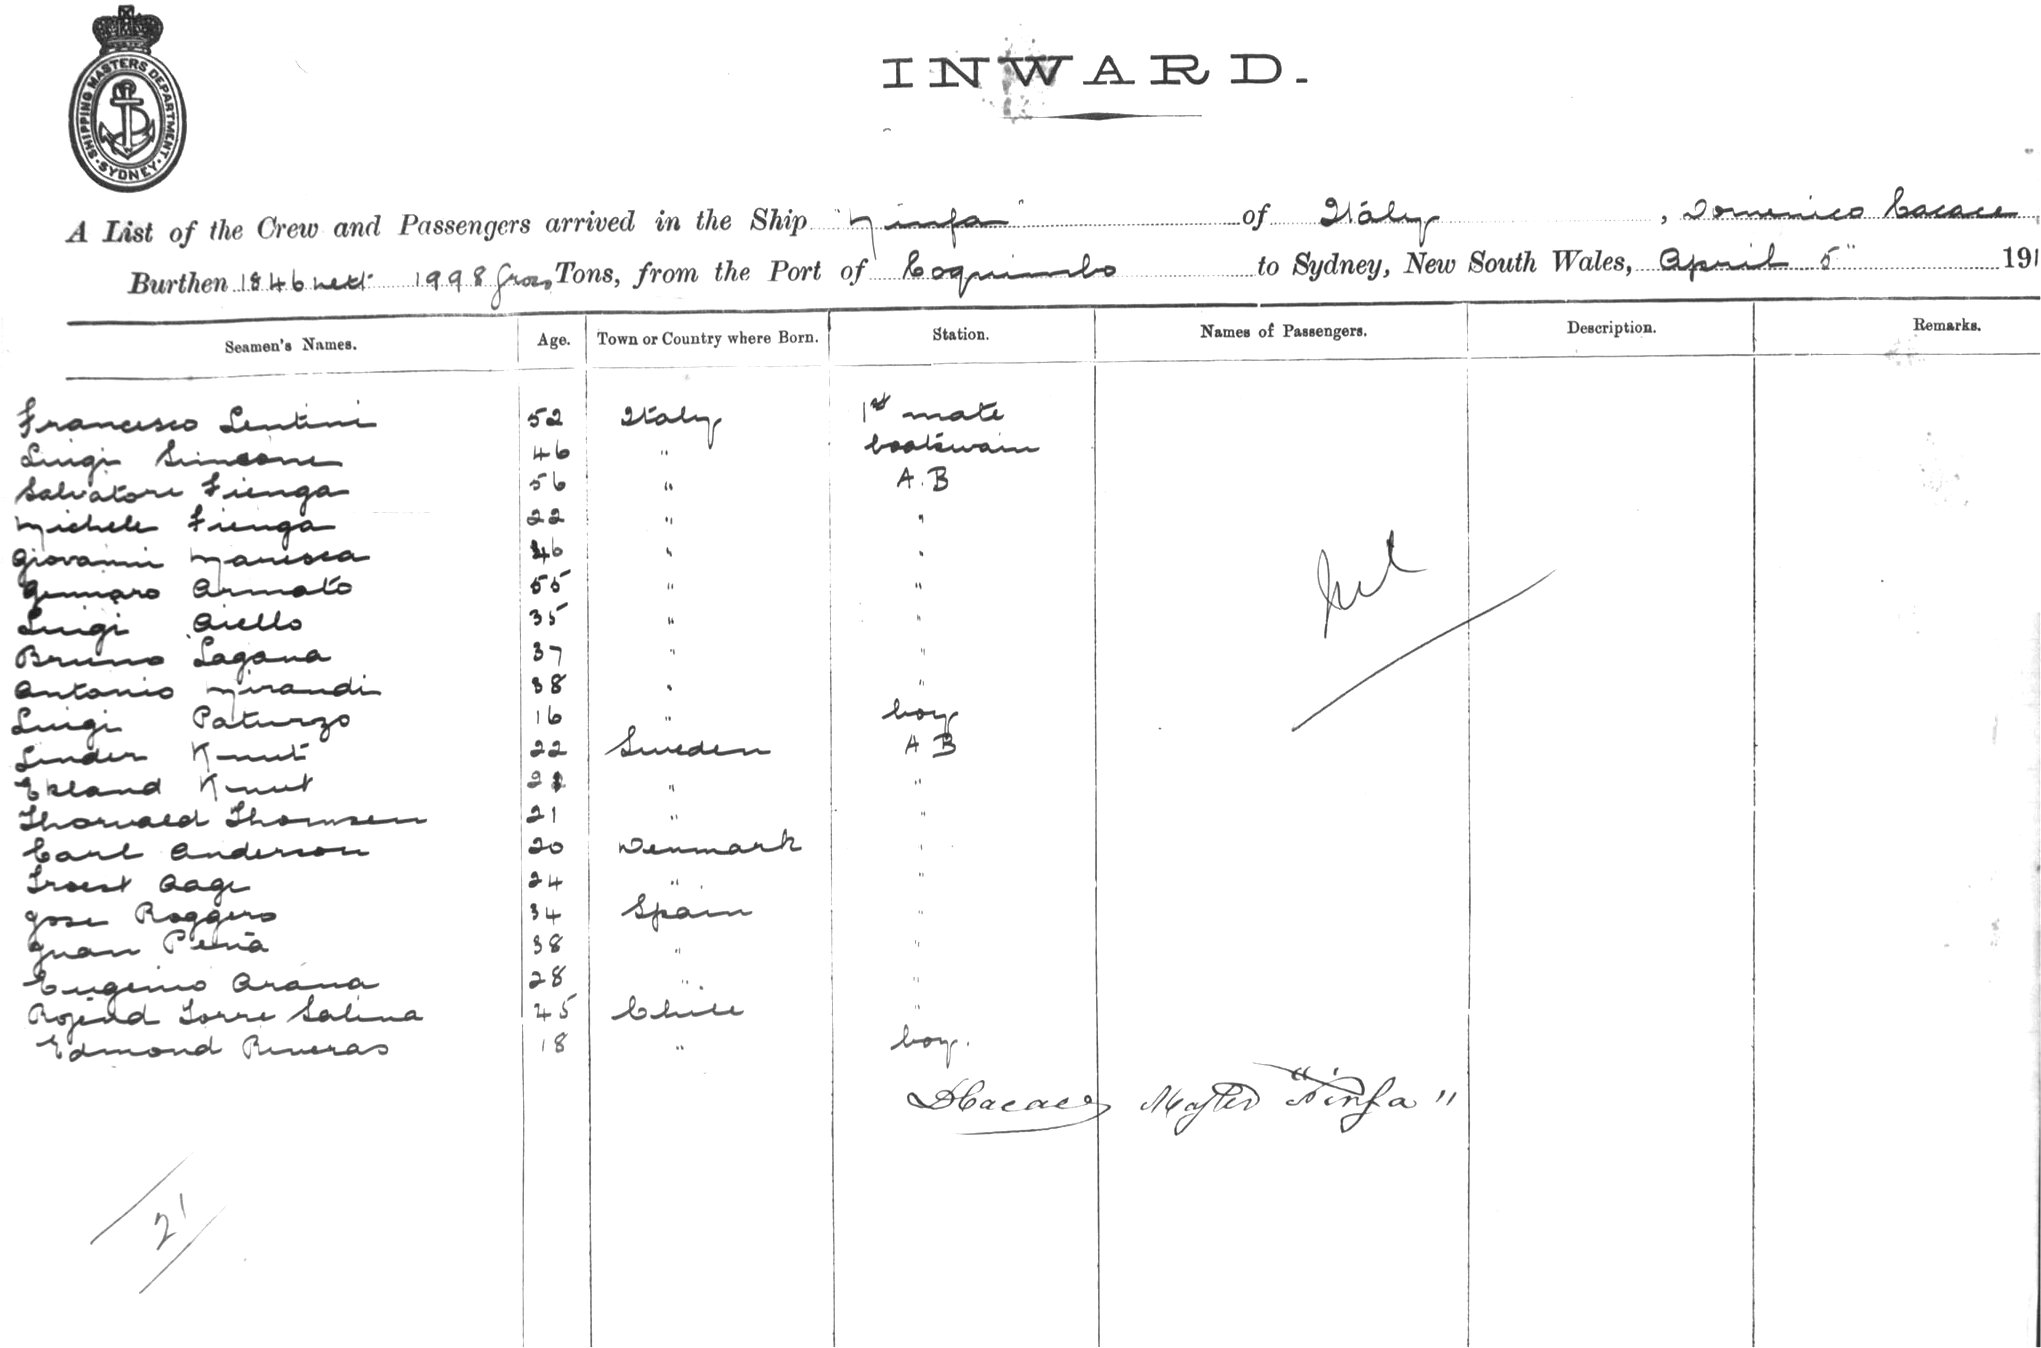 SHIPPING MASTERS DEPARTMENT · SYDNEY ·
INWARD.
A List of the Crew and Passengers arrived in the Ship "Ninfa" of Italy, Domenico Cacace
Burthen 1846 nett 1998 gross Tons, from the Port of Coquimbo to Sydney, New South Wales, April 5" 191
Seamen's Names. Age. Town or Country where Born. Station. Names of Passengers. Description. Remarks.
Francesco Lentini 52 Italy 1st mate
Luigi Simeone 46 " boatswain
Salvatore Fienga 56 " A.B
Michele Fienga 22 " "
Giovanni Maresca 46 " "
Gennaro Armato 55 " "
Luigi Aiello 35 " "
Bruno Lagana 37 " "
Antonio Mirandi 38 " "
Luigi Paturzo 16 " boy
Linder Knut 22 Sweden A B
Ekland Knut " "
Thorvald Thomsen 21 " "
Carl Anderson 20 Denmark "
Troest Aage 24 " "
Jose Roggero 34 Spain "
Juan Peña 38 " "
Eugenio Arana 28 " "
Rojend Torre Salina 45 Chile "
Edmond Riveras 18 " boy.
Nil
DCacace Master "Ninfa"
21